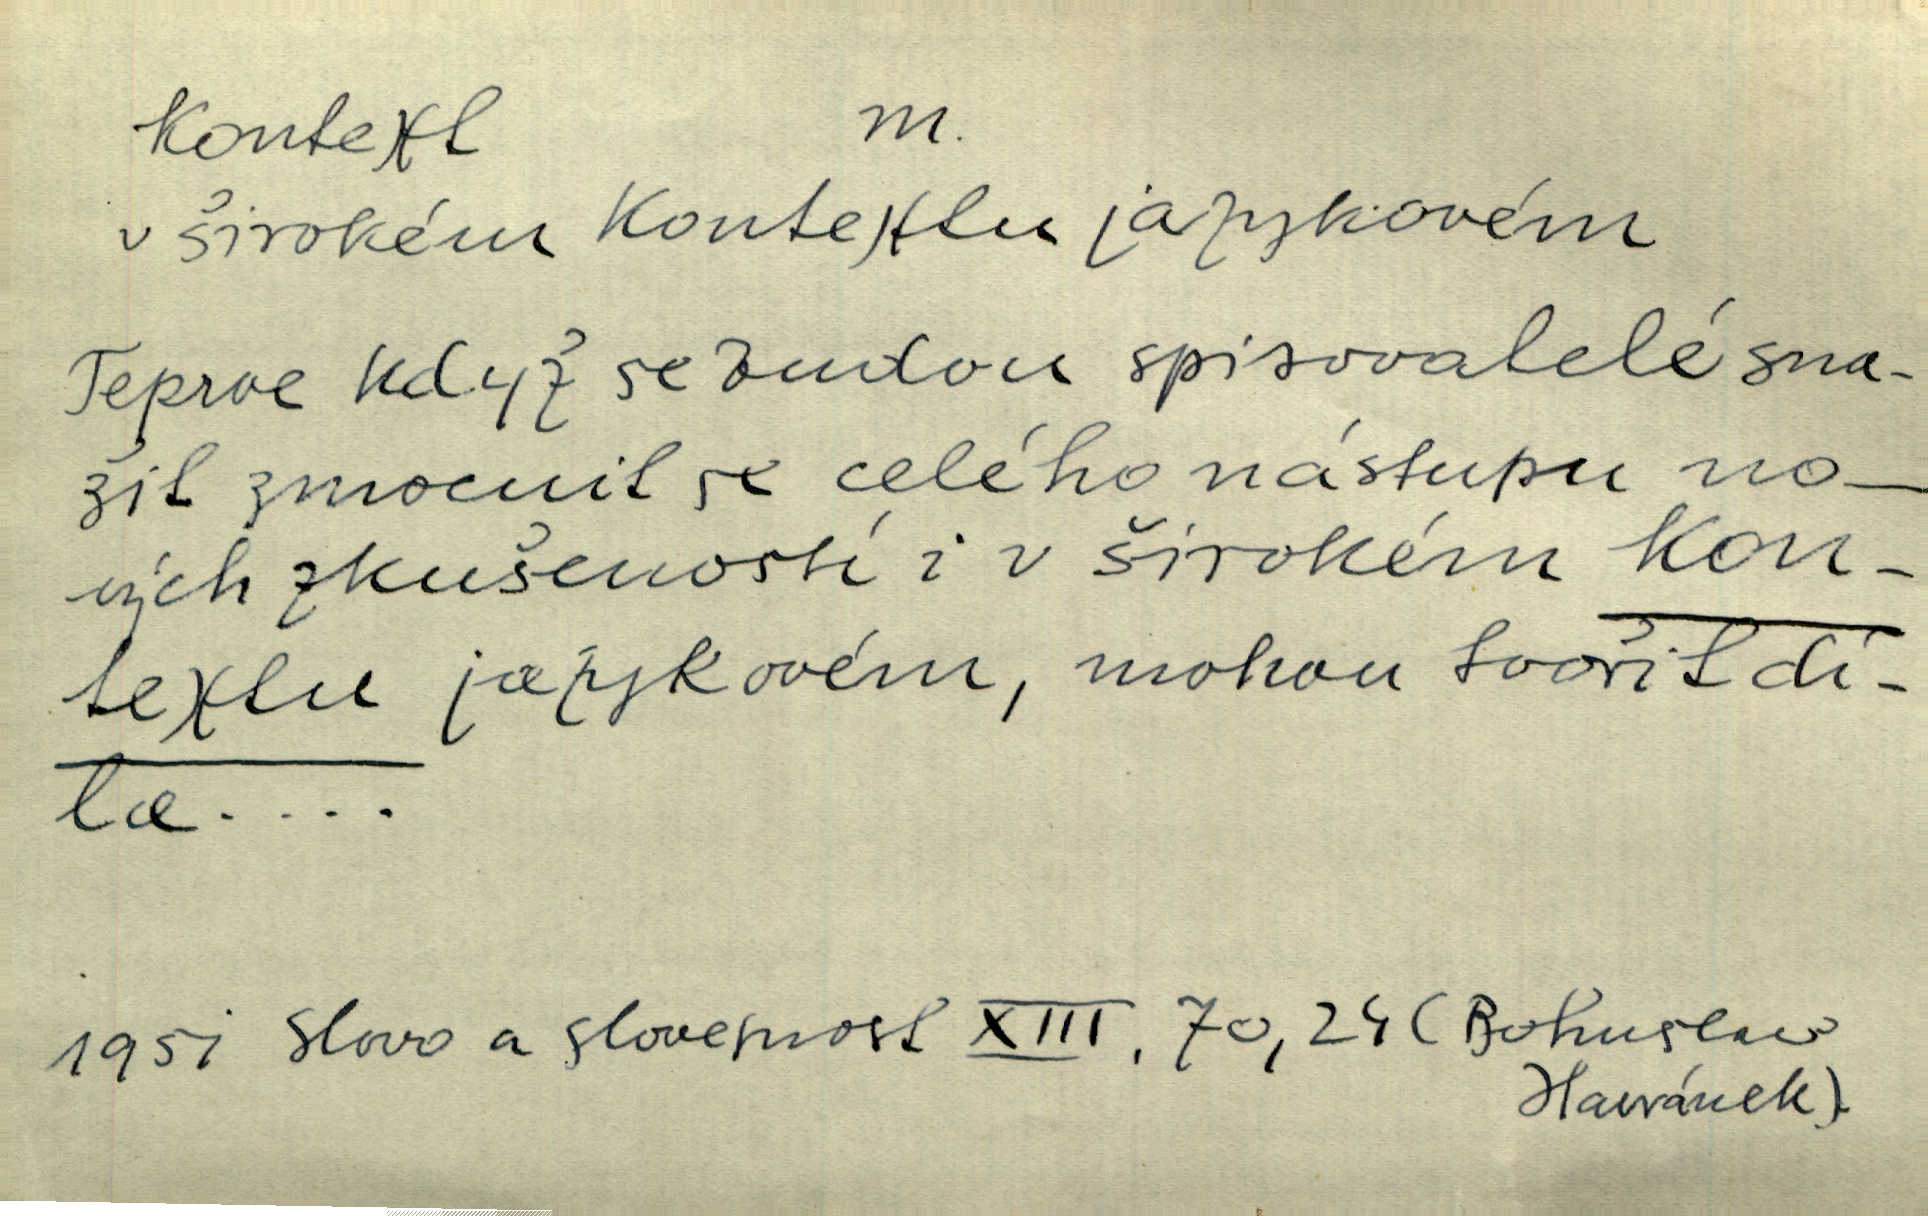 Kontext m.
v širokém kontextu jazykovém
Teprve když se budou spisovatelé sna-
žit zmocnit se celého nástupu no-
vých zkušeností i v širokém kon-
textu jazykovém, mohou tvořit dí-
la....
1951 Slovo a slovesnost XIII, 70, 24 (Bohuslav
Havránek)